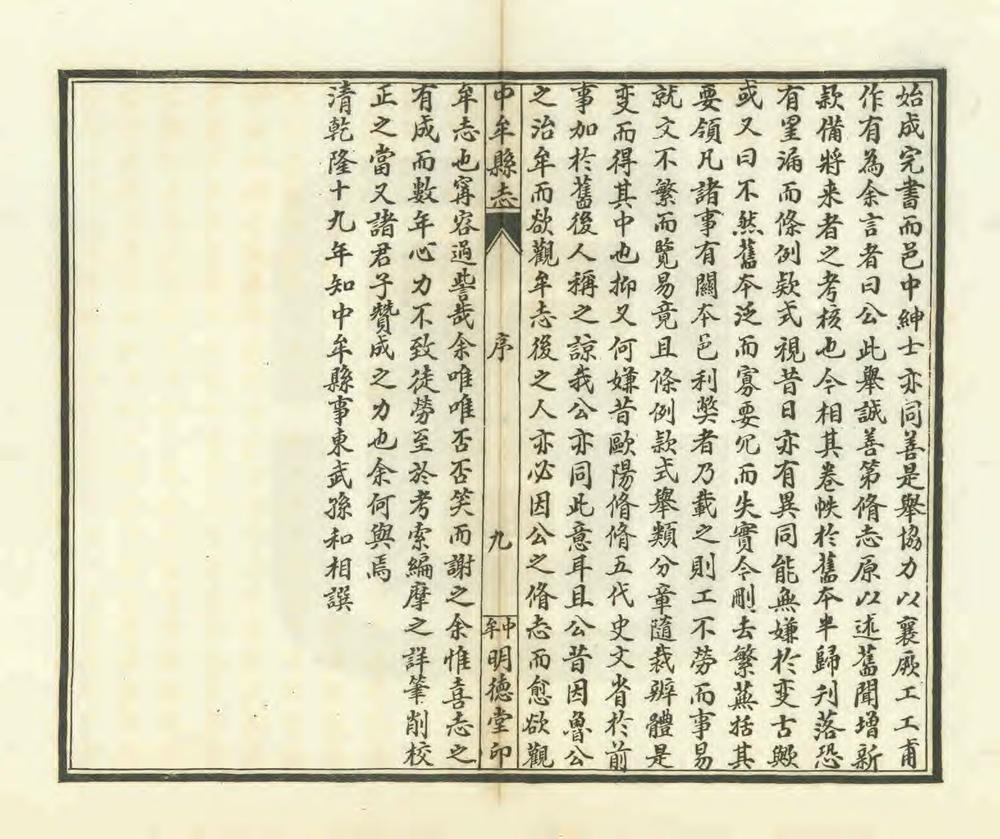 始成完書而邑中紳士亦同善是舉協力以襄厥工工甫
作有為余言者曰公此舉誠善第脩志原以述舊聞增新
款備將來者之考核也今相其卷帙於舊本半歸刋落恐
有罣漏而條例欵式視昔日亦有異同能無嫌於变古歟
或又曰不然舊本泛而寡要冗而失實今刪去繁蕪括其
要領凡諸事有關本邑利獘者乃載之則工不勞而事易
就文不繁而覽易竟且條例款式舉類分章隨裁辨體是
变而得其中也抑又何嫌昔歐陽脩脩五代史文省於前
事加於舊後人稱之諒我公亦同此意耳且公昔因魯公
之治牟而欲觀牟志後之人亦必因公之脩志而愈欲觀
中牟縣志 序 九 中牟明德堂印
牟志也寗容過譽哉余唯唯否否笑而謝之余惟喜志之
有成而數年心力不致徒勞至於考索編摩之詳筆削校
正之當又諸君子贊成之力也余何與焉
清乾隆十九年知中牟縣事東武孫和相譔